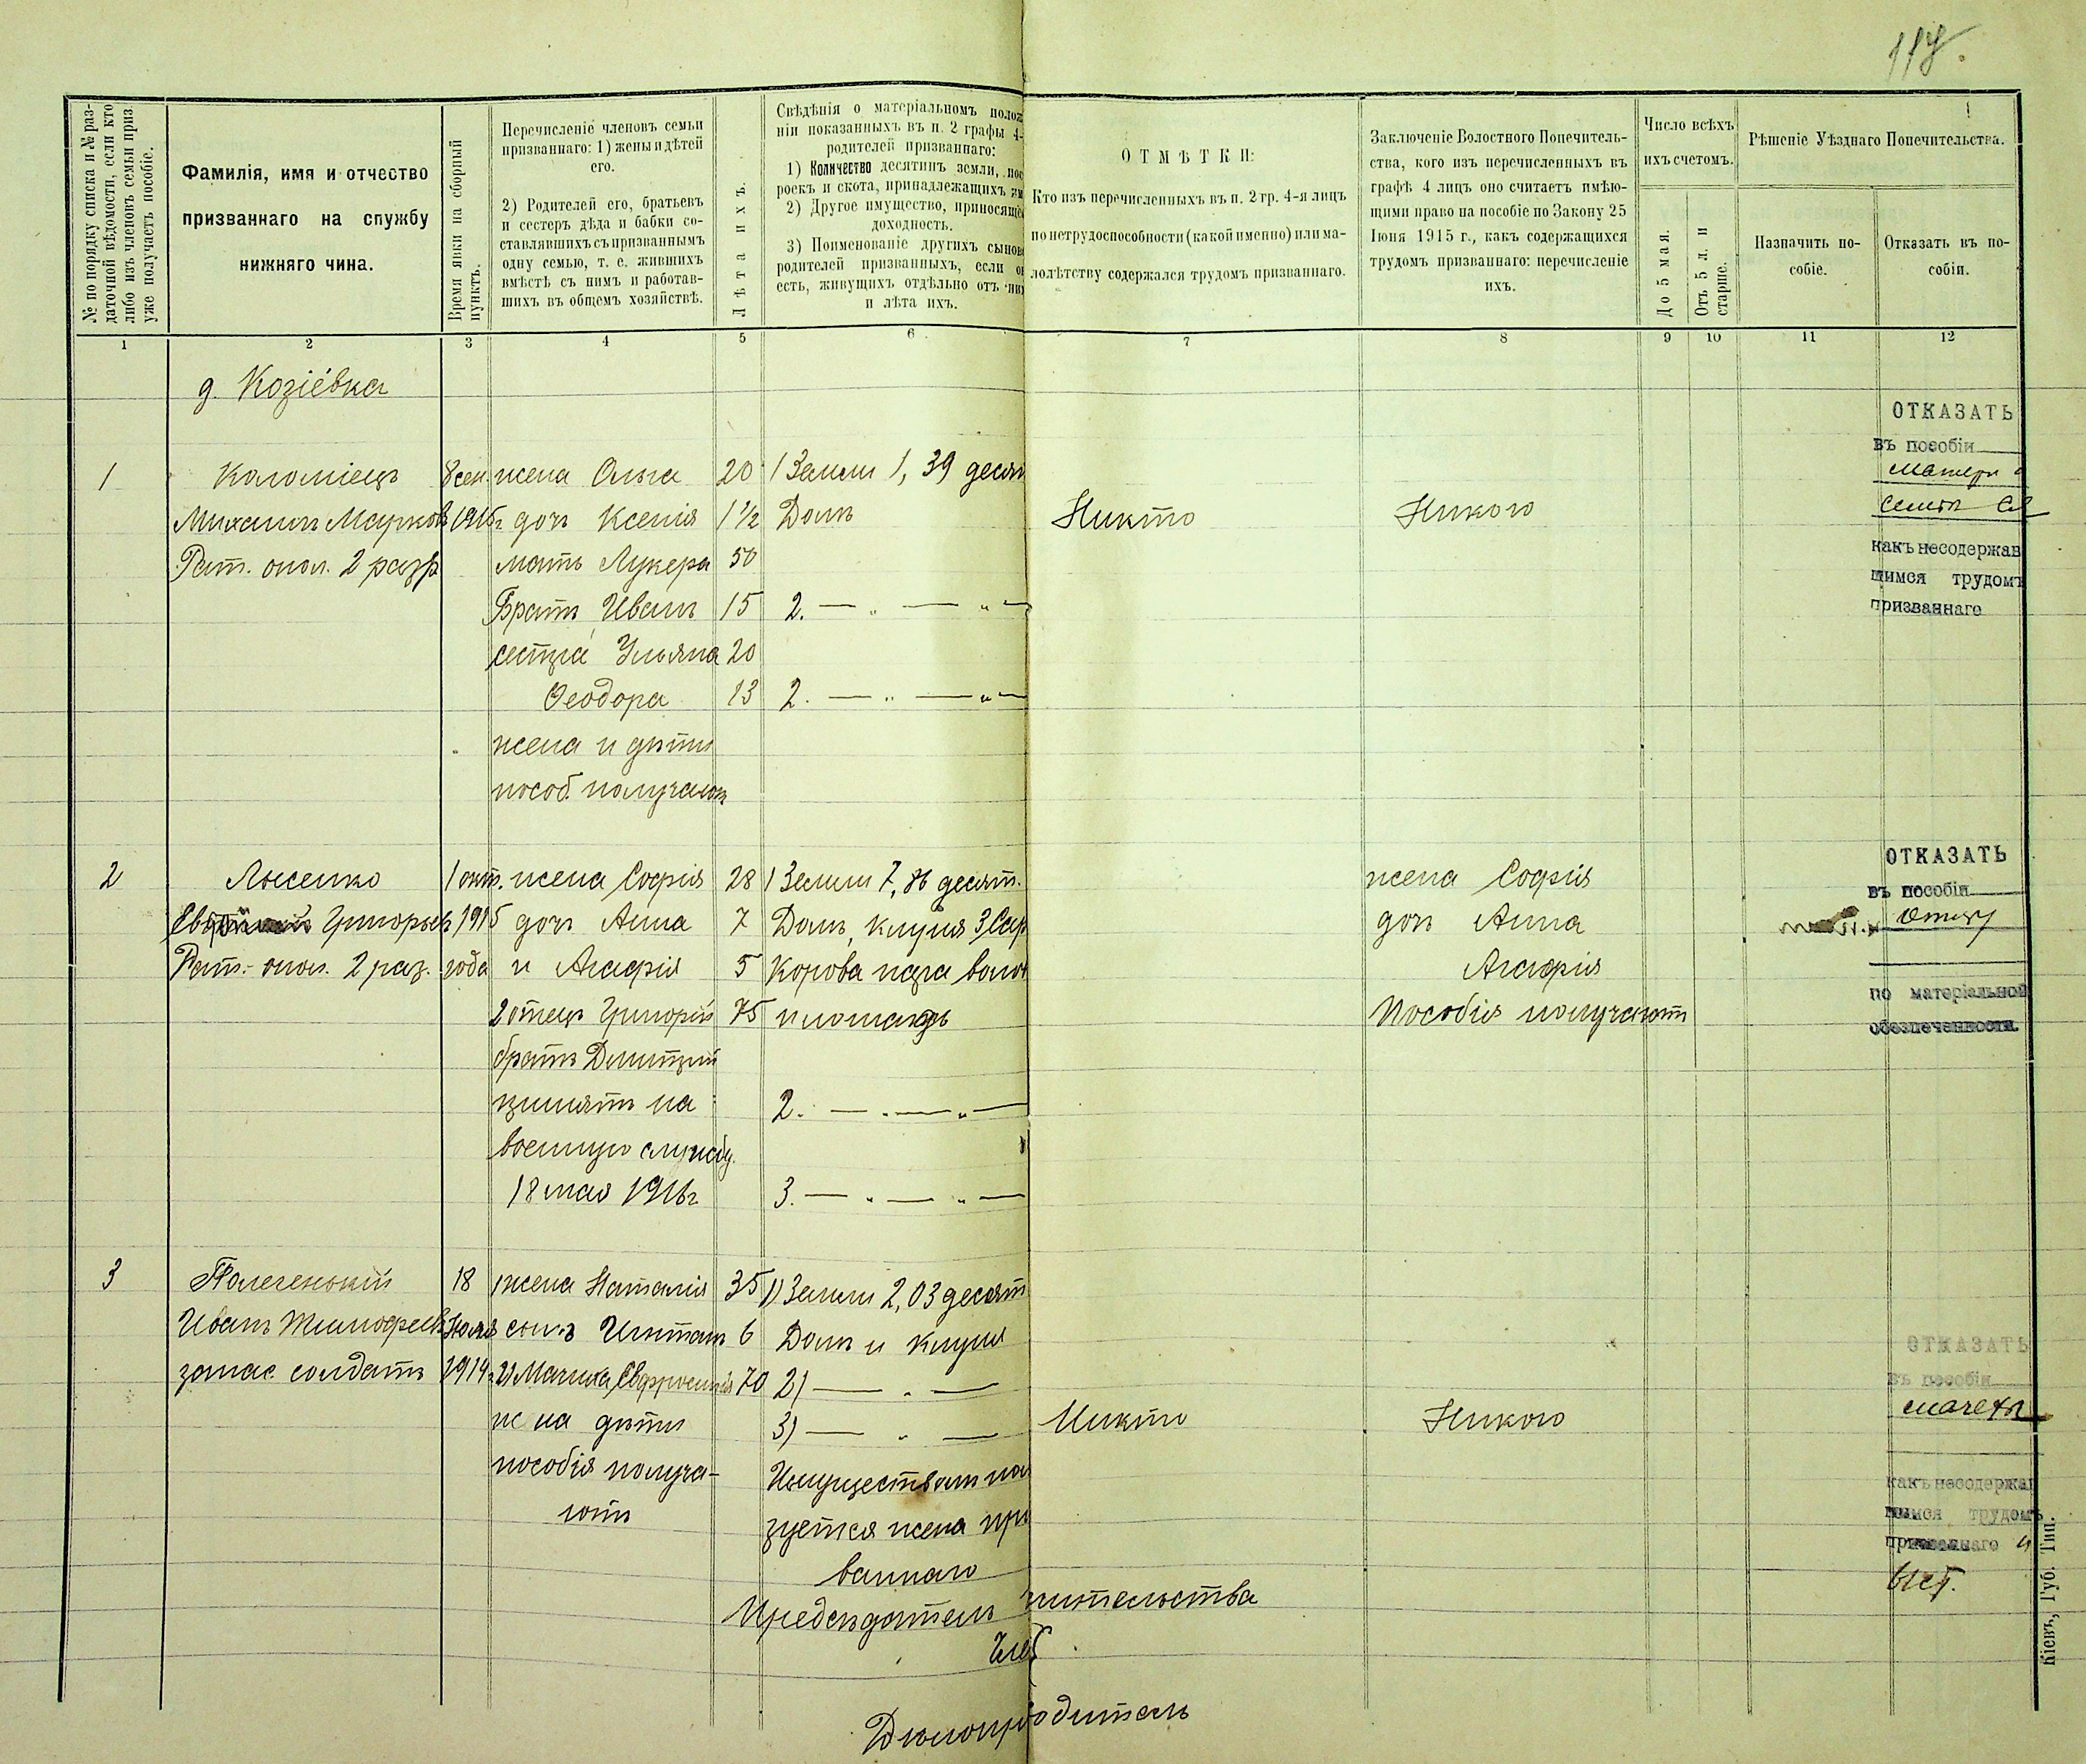 117.
№ по порядку списка и № раз-
даточной вѣдомости, если кто
либо изъ членовъ семьи приз.
уже получаетъ пособіе.
Фамилія, имя и отчество
призваннаго на службу
нижняго чина.
Время явки на сборный
пунктъ.
Перечисленіе членовъ семьи
призваннаго: 1) жены и дѣтей
его.
2) Родителей его, братьевъ
и сестеръ дѣда и бабки со-
ставлявшихъ съ призваннымъ
одну семью, т. е. жившихъ
вмѣстѣ съ нимъ и работав-
шихъ въ общемъ хозяйствѣ.
Лѣта ихъ.
Свѣдѣнія о матеріальномъ полож
ніи показанныхъ въ п. 2 графы 4-
родителей призваннаго:
1) Количество десятинъ земли, пос
роекъ и скота, принадлежащихъ им
2) Другое имущество, приносяще
доходность.
3) Поименованіе другихъ сынов
родителей призванныхъ, если о
есть, живущихъ отдѣльно отъ ни
и лѣта ихъ.
ОТМѢТКИ:
Кто изъ перечисленныхъ въ п. 2 гр. 4-я лицъ
по нетрудоспособности (какой именно) или ма-
лолѣтству содержался трудомъ призваннаго.
Заключеніе Волостного Попечитель-
ства, кого изъ перечисленныхъ въ
графѣ 4 лицъ оно считаетъ имѣю-
щими право на пособіе по Закону 25
Іюня 1915 г., какъ содержащихся
трудомъ призваннаго: перечисленіе
ихъ.
Число всѣхъ
ихъ счетомъ.
До 5 мая.
Отъ 5 л. и
старше.
Рѣшеніе Уѣзднаго Попечительства.
Назначить по-
собіе.
Отказать въ по-
собіи.
1 2 3 4 5 6 7 8 9 10 11 12
д. Козіевка
1 Коломіецъ 8 сен. жена Ольга 20 1 Земли 1,39 десят
Михаилъ Марковъ 1915г дочь Ксенія 1½ Домъ Никто Никого
Рат. опол. 2 разр. мать Лукера 50
Братъ Иванъ 15 2. — „ — „ —
сестра Ульяна 20
Феодора 13 2. — „ — „ —
жена и дѣти
пособ. получают
ОТКАЗАТЬ
въ пособіи
матери
какъ несодержав
шимся трудомъ
призваннаго
2 Лысенко 1 окт. жена Софія 28 1 Земли 7,86 десят. жена Софія
Григорьев 1915 дочь Анна 7 Домъ, клуня дочь Анна
Рат. опол. 2 раз. года и Агафія 5 Корова пара волов Агафія
2 отецъ Григорій 75 и лошадь Пособія получают
братъ Дмитрий
принятъ на 2. — „ — „ —
военную службу.
18 мая 1916г 3. — „ — „ —
ОТКАЗАТЬ
въ пособіи
отцу
по матеріальной
обезпеченности.
3 18 жена Наталія 35 1) Земли 2,03 десят
Иванъ Тимофеевъ Іюля сынъ 6 Домъ и клуня
запас. солдатъ 1914г 2) Мачиха Евфросинія 70 2) — „ —
жена дѣти 3) — „ — Никто Никого
пособія получа- Имуществом пол
ютъ зуется жена при
ваннаго
ОТКАЗАТЬ
въ пособіи
мачехѣ
какъ несодержав
шимся трудомъ
призваннаго
Предсѣдатель чительства
Чле
Дѣлопроизводитель
Кіевъ, Губ. Тип.